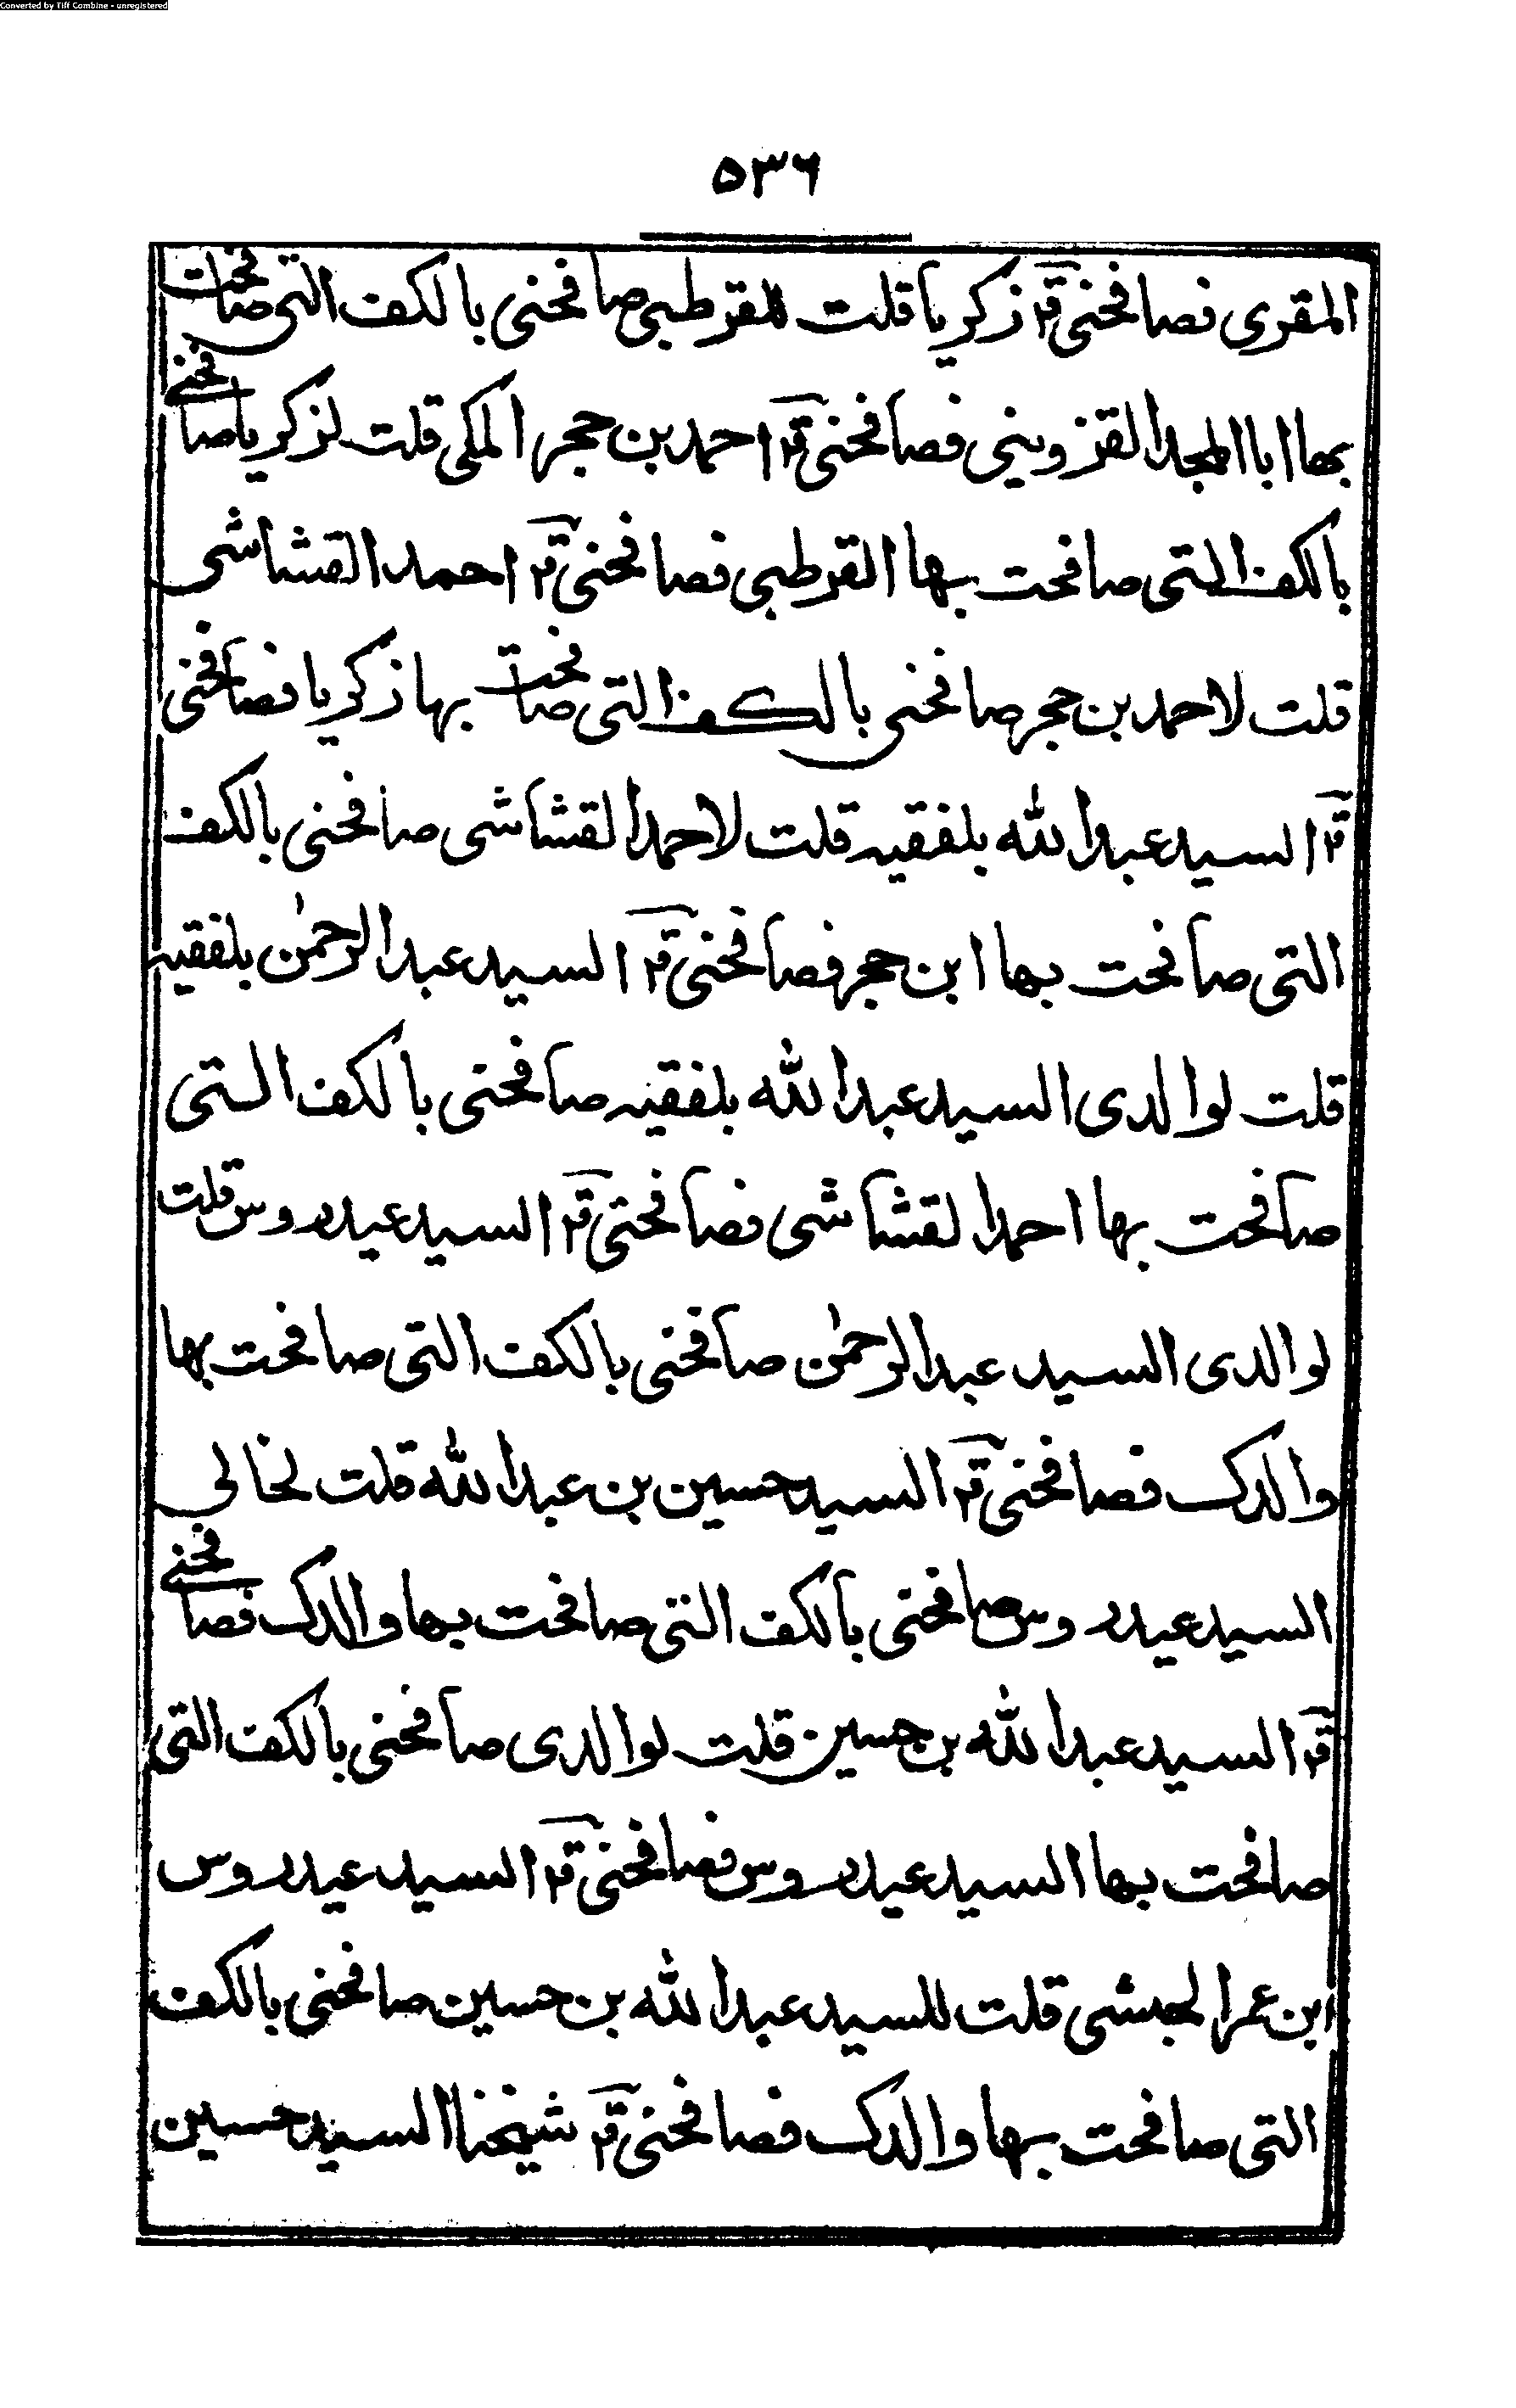 Converted by Tiff Combine - unregistered
٥٣٦
المقرى فصافحنى قٓ زكريا قلت للقرطبى صافحنى بالكف التى صافحت
بها ابا المجد القزوينى فصافحنى قٓ احمد بن حجر المكى قلت لزكريا صافحنى
بالكف التى صافحت بها القرطبى فصافحنى قٓ احمد القشاشى
قلت لاحمد بن حجر صافحنى بالكف التى صافحت بها زكريا فصافحنى
قٓ السيد عبدالله بلفقيه قلت لاحمد القشاشى صافحنى بالكف
التى صافحت بها ابن حجر فصافحنى قٓ السيد عبدالرحمٰن بلفقيه
قلت لوالدى السيد عبدالله بلفقيه صافحنى بالكف التى
صافحت بها احمد القشاشى فصافحنى قٓ السيد عيدروس قلت
لوالدى السيد عبدالرحمٰن صافحنى بالكف التى صافحت بها
والدك فصافحنى قٓ السيد حسين بن عبدالله قلت لخالى
السيد عيدروس صافحنى بالكف التى صافحت بها والدك فصافحنى
قٓ السيد عبدالله بن حسين قلت لوالدى صافحنى بالكف التى
صافحت بها السيد عيدروس فصافحنى قٓ السيد عيدروس
ابن عمر الحبشى قلت للسيد عبدالله بن حسين صافحنى بالكف
التى صافحت بها والدك فصافحنى قٓ شيخنا السيد حسين